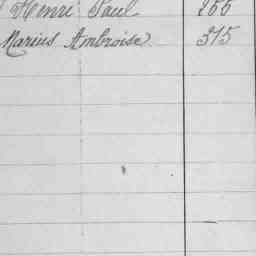 Henri Paul 266
Marius Ambroise 315